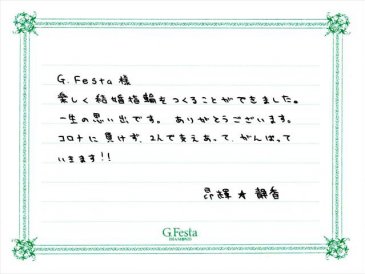 G.Festa 様
楽しく結婚指輪をつくることができました。
一生の思い出です。ありがとうございます。
コロナに負けず、2人で支えあって、がんばって
いきます!!
昂輝 ★ 静香
G.Festa
DIAMOND